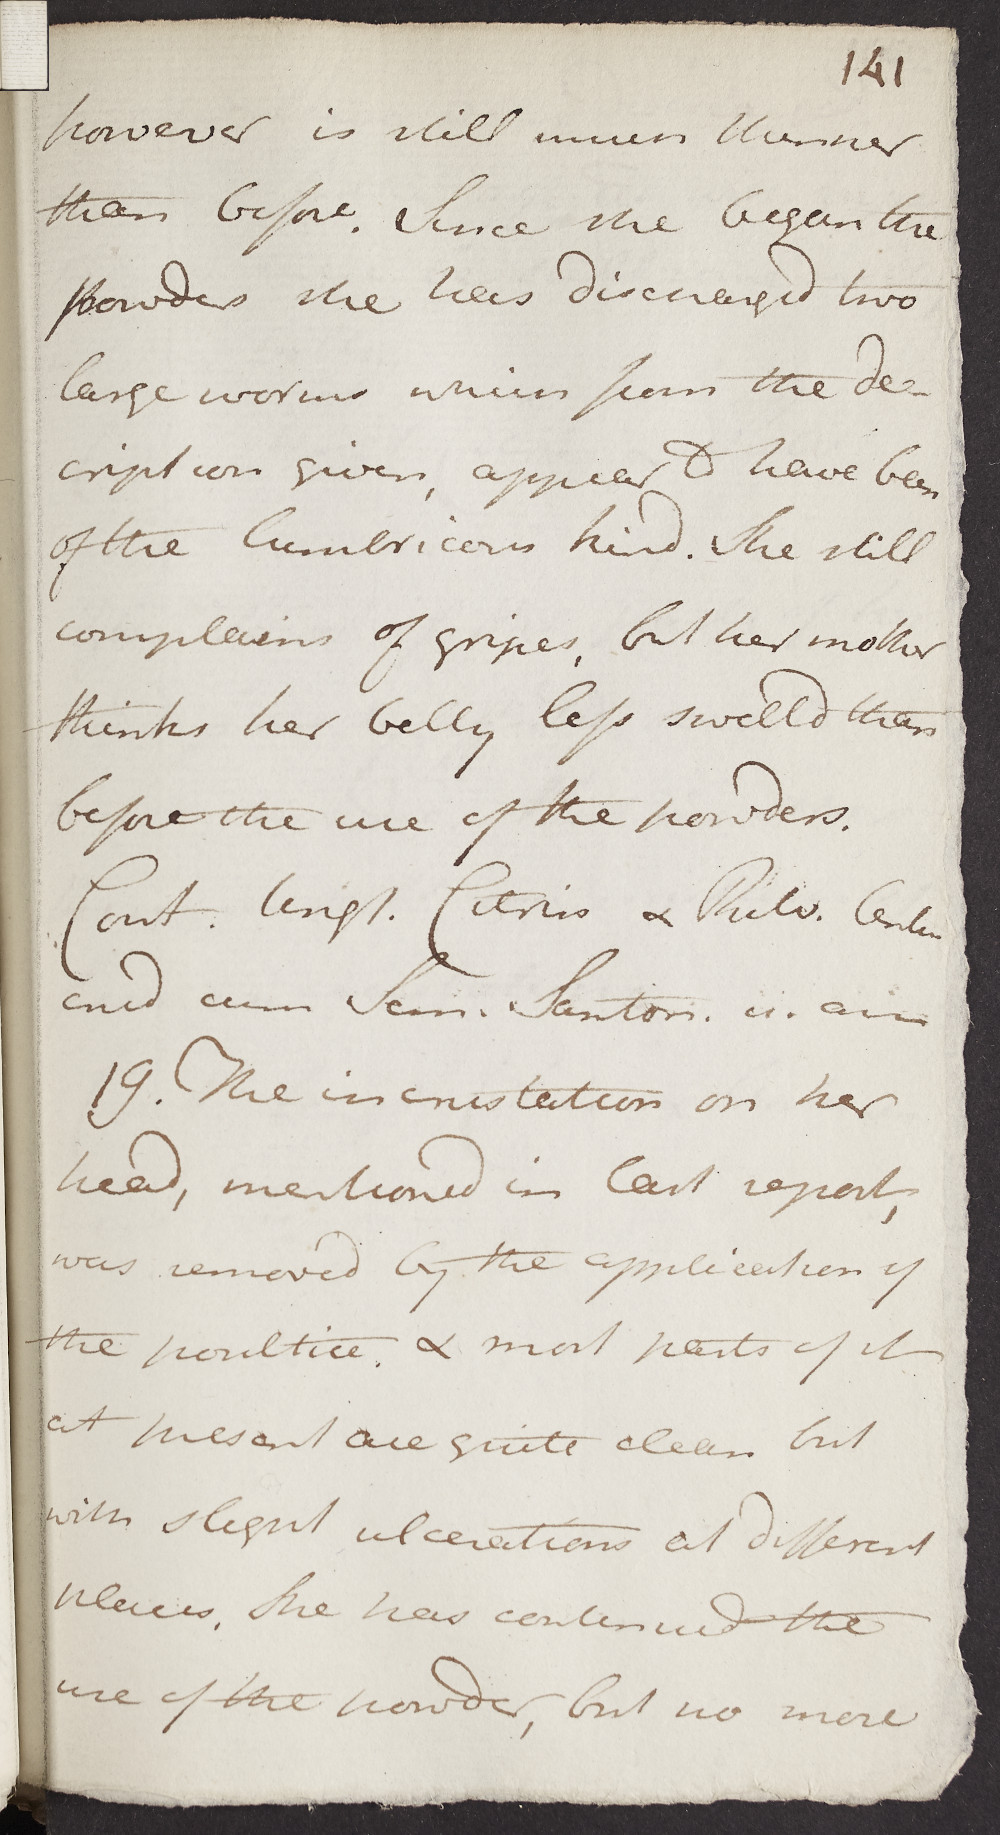 141
however is still much thinner
than before. Since she began the
powders she has discharged two
large worms which from the de-
cription given, appear to have been
of the lumbricous kind. She still
complains of gripes, but her mother
thinks her belly less swelld than
before the use of the powders.
Cont. Ungt. Citrin & Pulv.
cum Sem. Santon.
19. The incrustation on her
head, mentioned in last report,
was removed by the application of
the poultice. & most parts of it
at present are quite clean but
with slight ulcerations at different
places. She has continued the
use of the powder, but no more